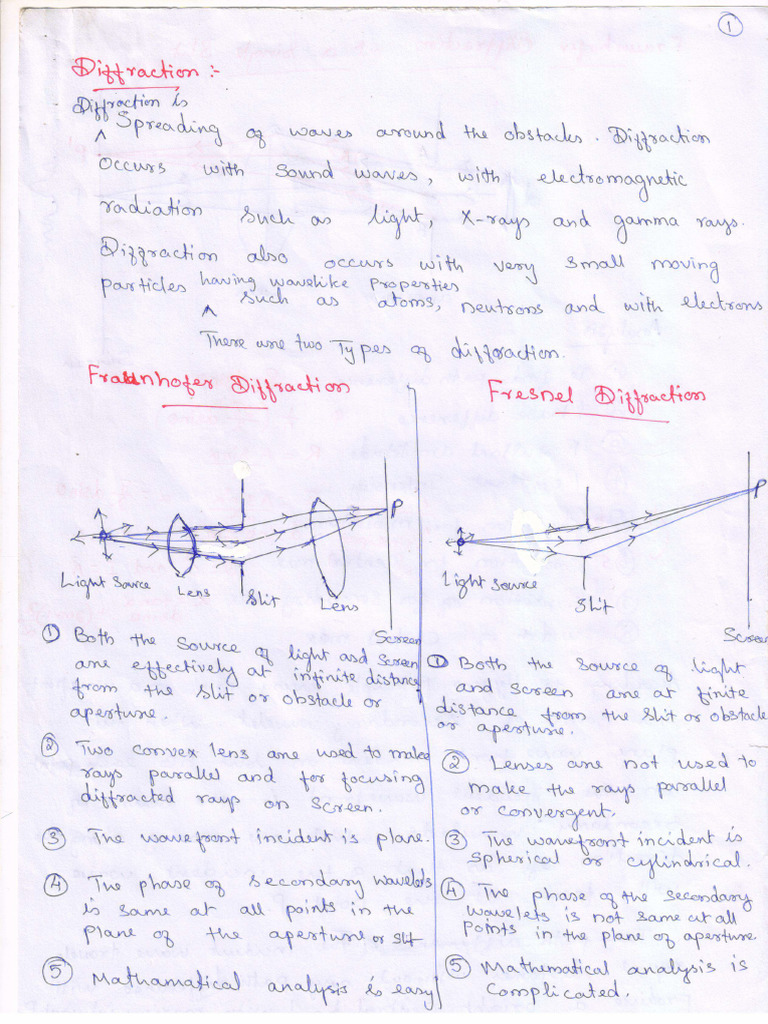 1
Diffraction :-
Diffraction is
Spreading of waves around the obstacles. Diffraction
occurs with sound waves, with electromagnetic
radiation such as light, X-rays and gamma rays.
Diffraction also occurs with very small moving
particles having wavelike properties
such as atoms, neutrons and with electrons
There are two Types of diffraction.
Fraunhofer Diffraction
P
Light Source
Lens
Slit
Lens
Screen
① Both the Source of light and Screen
are effectively at infinite distance
from the slit or obstacle or
aperture
② Two convex lens are used to make
rays parallel and for focusing
diffracted rays on screen.
③ The wavefront incident is plane.
④ The phase of secondary wavelets
is same at all points in the
plane of the aperture or slit
⑤ Mathamatical analysis is easy
Fresnel Diffraction
P
Light Source
Slit
Screen
① Both the source of light
and screen are at finite
distance from the slit or obstacle
or aperture.
② Lenses are not used to
make the rays parallel
or convergent.
③ The wavefront incident is
spherical or cylindrical.
④ The phase of the secondary
wavelets is not same at all
points in the plane of aperture.
⑤ Mathematical analysis is
complicated.